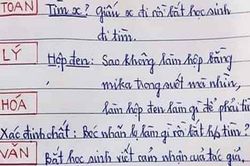 TOÁN Tìm x? Giấu x đi rồi bắt học sinh
đi tìm.
LÝ Hộp đen: Sao không làm hộp bằng
mika trong suốt mà nhìn,
HÓA làm hộp đen làm gì để phải
Xác định chất: Bọc nhãn lọ làm gì rồi bắt họ tìm?
VĂN Bắt học sinh viết cảm nhận của tác giả